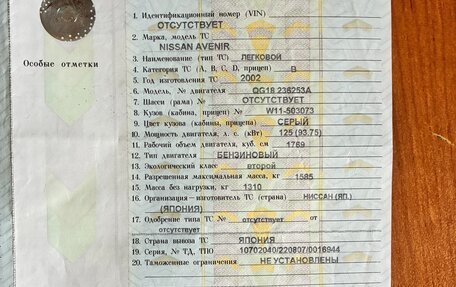 1. Идентификационный номер (VIN)
ОТСУТСТВУЕТ
2. Марка, модель ТС
NISSAN AVENIR
Особые отметки
3. Наименование (тип ТС) ЛЕГКОВОЙ
4. Категория ТС (А, В, С, D, прицеп) B
5. Год изготовления ТС 2002
6. Модель, № двигателя QG18 236253A
7. Шасси (рама) № ОТСУТСТВУЕТ
8. Кузов (кабина, прицеп) № W11-503073
9. Цвет кузова (кабины, прицепа) СЕРЫЙ
10. Мощность двигателя, л. с. (кВт) 125 (93.75)
11. Рабочий объем двигателя, куб. см 1769
12. Тип двигателя БЕНЗИНОВЫЙ
13. Экологический класс второй
14. Разрешенная максимальная масса, кг 1585
15. Масса без нагрузки, кг 1310
16. Организация-изготовитель ТС (страна) НИССАН (ЯП.)
(ЯПОНИЯ)
17. Одобрение типа ТС № отсутствует от
отсутствует
18. Страна вывоза ТС ЯПОНИЯ
19. Серия, № ТД, ТПО 10702040/220807/0016944
20. Таможенные ограничения НЕ УСТАНОВЛЕНЫ